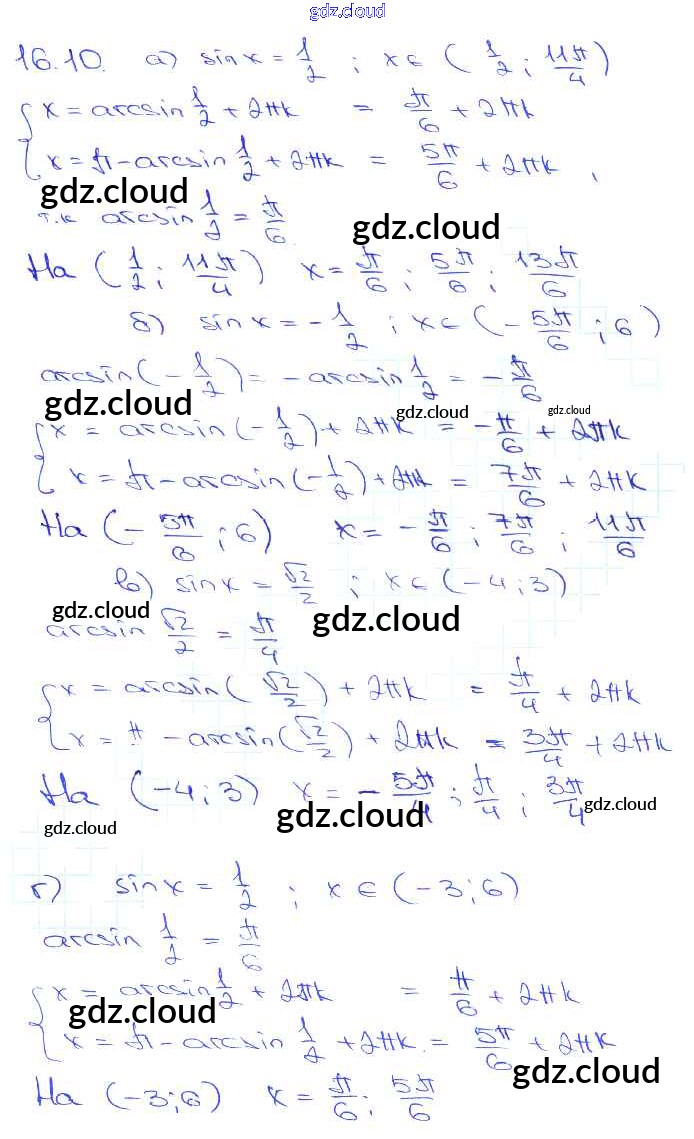 gdz.cloud
16.10. а) sin x = 1/2 ; x ∈ (1/2 ; 11π/4)
{ x = arcsin 1/2 + 2πk = π/6 + 2πk
x = π - arcsin 1/2 + 2πk = 5π/6 + 2πk ,
gdz.cloud gdz.cloud
т.к arcsin 1/2 = π/6
На (1/2 ; 11π/4) x = π/6 ; 5π/6 ; 13π/6
б) sin x = - 1/2 ; x ∈ (- 5π/6 ; 6)
arcsin(- 1/2) = - arcsin 1/2 = - π/6
gdz.cloud gdz.cloud gdz.cloud
{ x = arcsin(- 1/2) + 2πk = - π/6 + 2πk
x = π - arcsin(- 1/2) + 2πk = 7π/6 + 2πk
На (- 5π/8 ; 6) x = - π/6 ; 7π/6 ; 11π/6
в) sin x = √2/2 ; x ∈ (-4 ; 3)
gdz.cloud gdz.cloud
arcsin √2/2 = π/4
{ x = arcsin(√2/2) + 2πk = π/4 + 2πk
x = π - arcsin(√2/2) + 2πk = 3π/4 + 2πk
На (-4 ; 3) x = - 5π/4 ; π/4 ; 3π/4
gdz.cloud gdz.cloud gdz.cloud
г) sin x = 1/2 ; x ∈ (-3 ; 6)
arcsin 1/2 = π/6
{ x = arcsin 1/2 + 2πk = π/6 + 2πk
gdz.cloud
x = π - arcsin 1/2 + 2πk = 5π/6 + 2πk
gdz.cloud
На (-3 ; 6) x = π/6 ; 5π/6